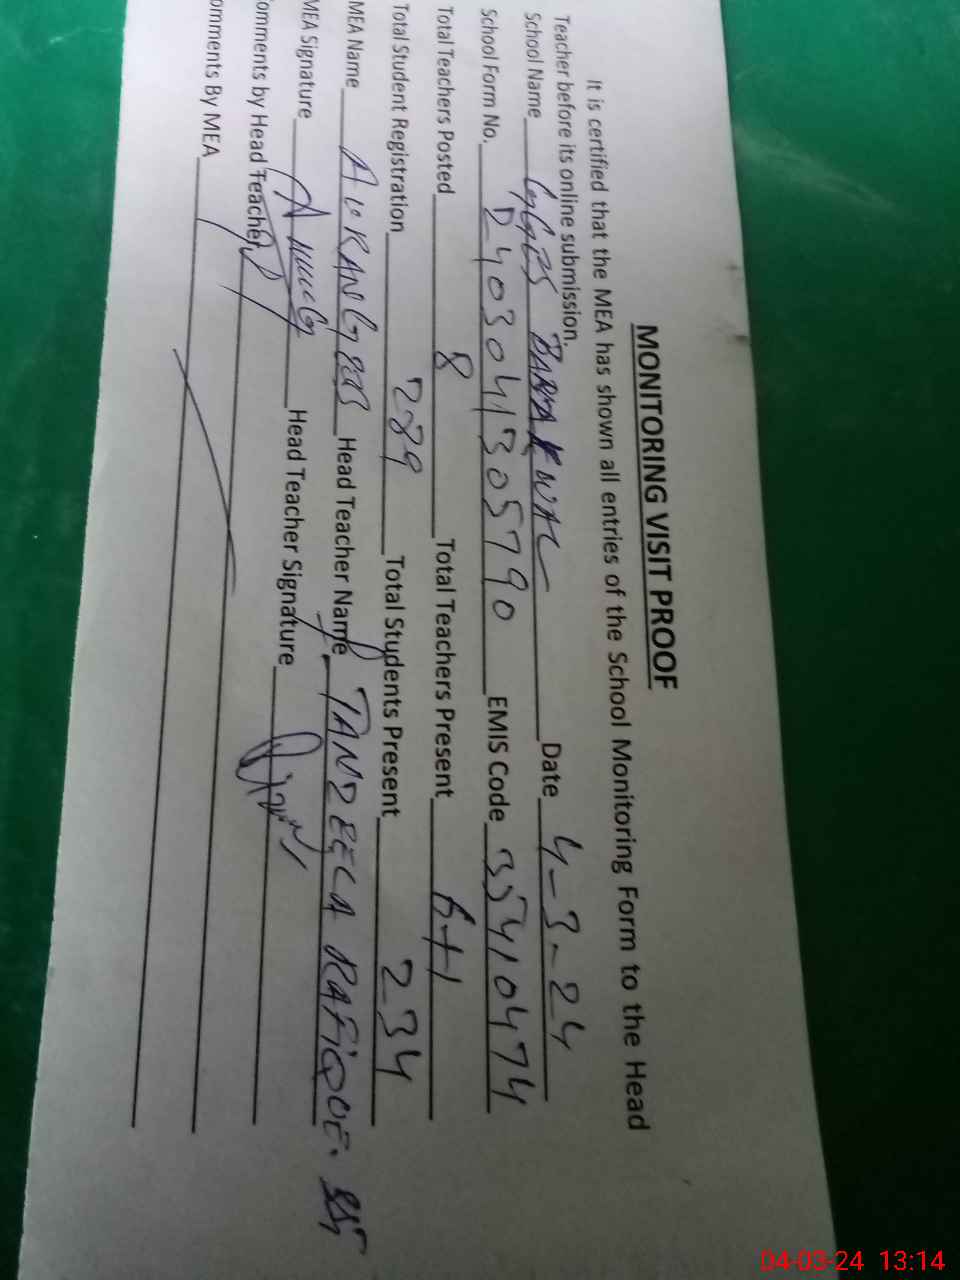 MONITORING VISIT PROOF
It is certified that the MEA has shown all entries of the School Monitoring Form to the Head
Teacher before its online submission.
School Name GGES Date 4-3-24
School Form No. 2403041305790 EMIS Code 35410474
Total Teachers Posted 8 Total Teachers Present 6+1
Total Student Registration 289 Total Students Present 234
MEA Name AURANGZEB Head Teacher Name TANZEELA RAFIQUE.
MEA Signature Head Teacher Signature
omments by Head Teacher
omments By MEA
04-03-24 13:14